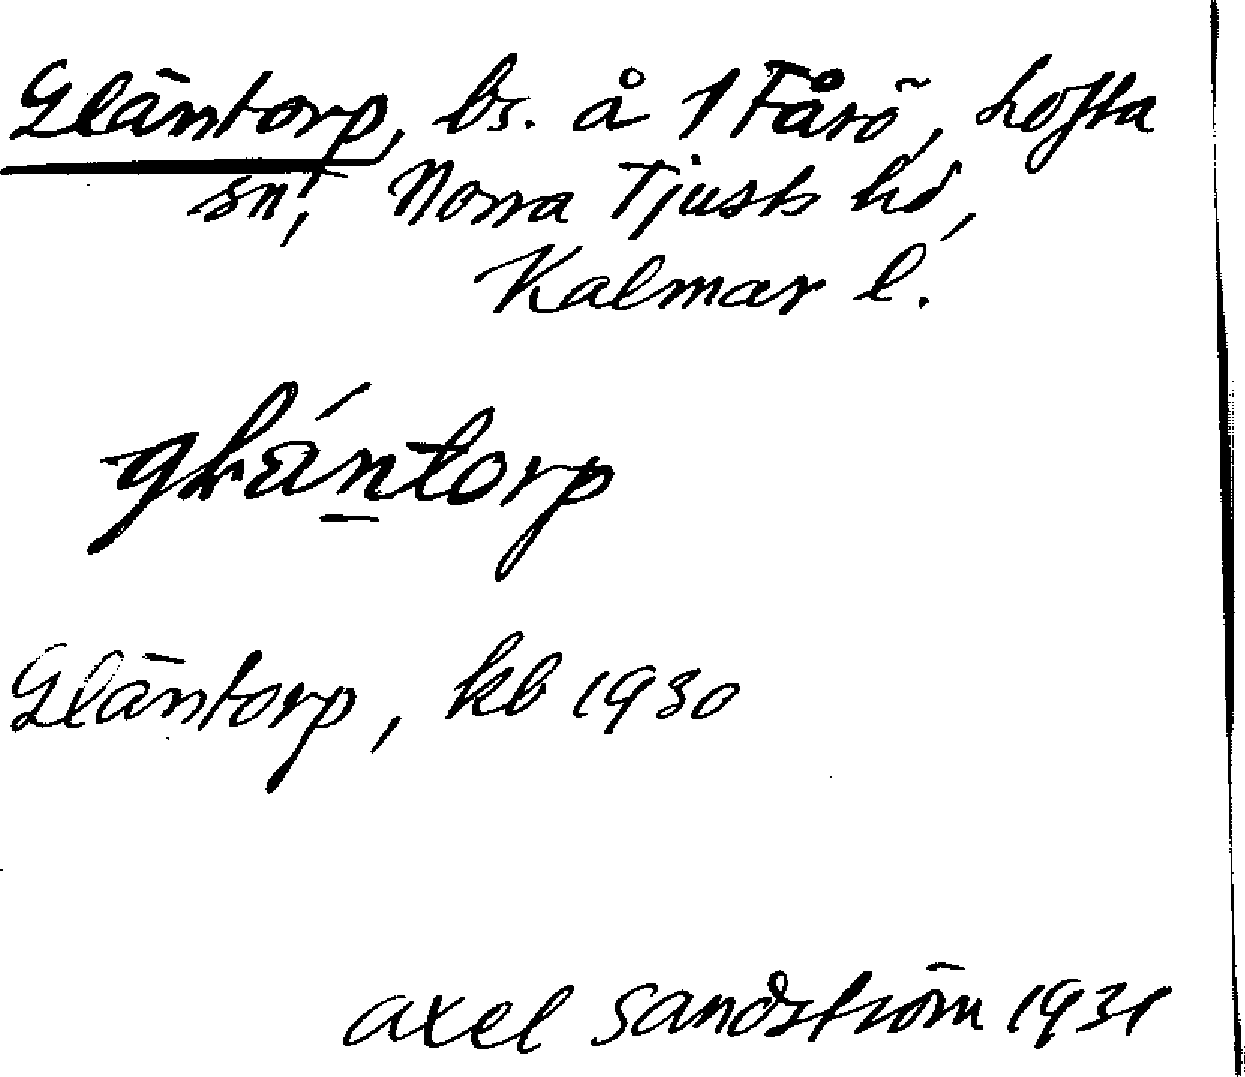 Gläntorp, bs. å 1 Fårö, Lofta
sn, Norra Tjusts hd,
Kalmar l.
glä́ntorp
Gläntorp, kb 1930
Axel Sandström 1931